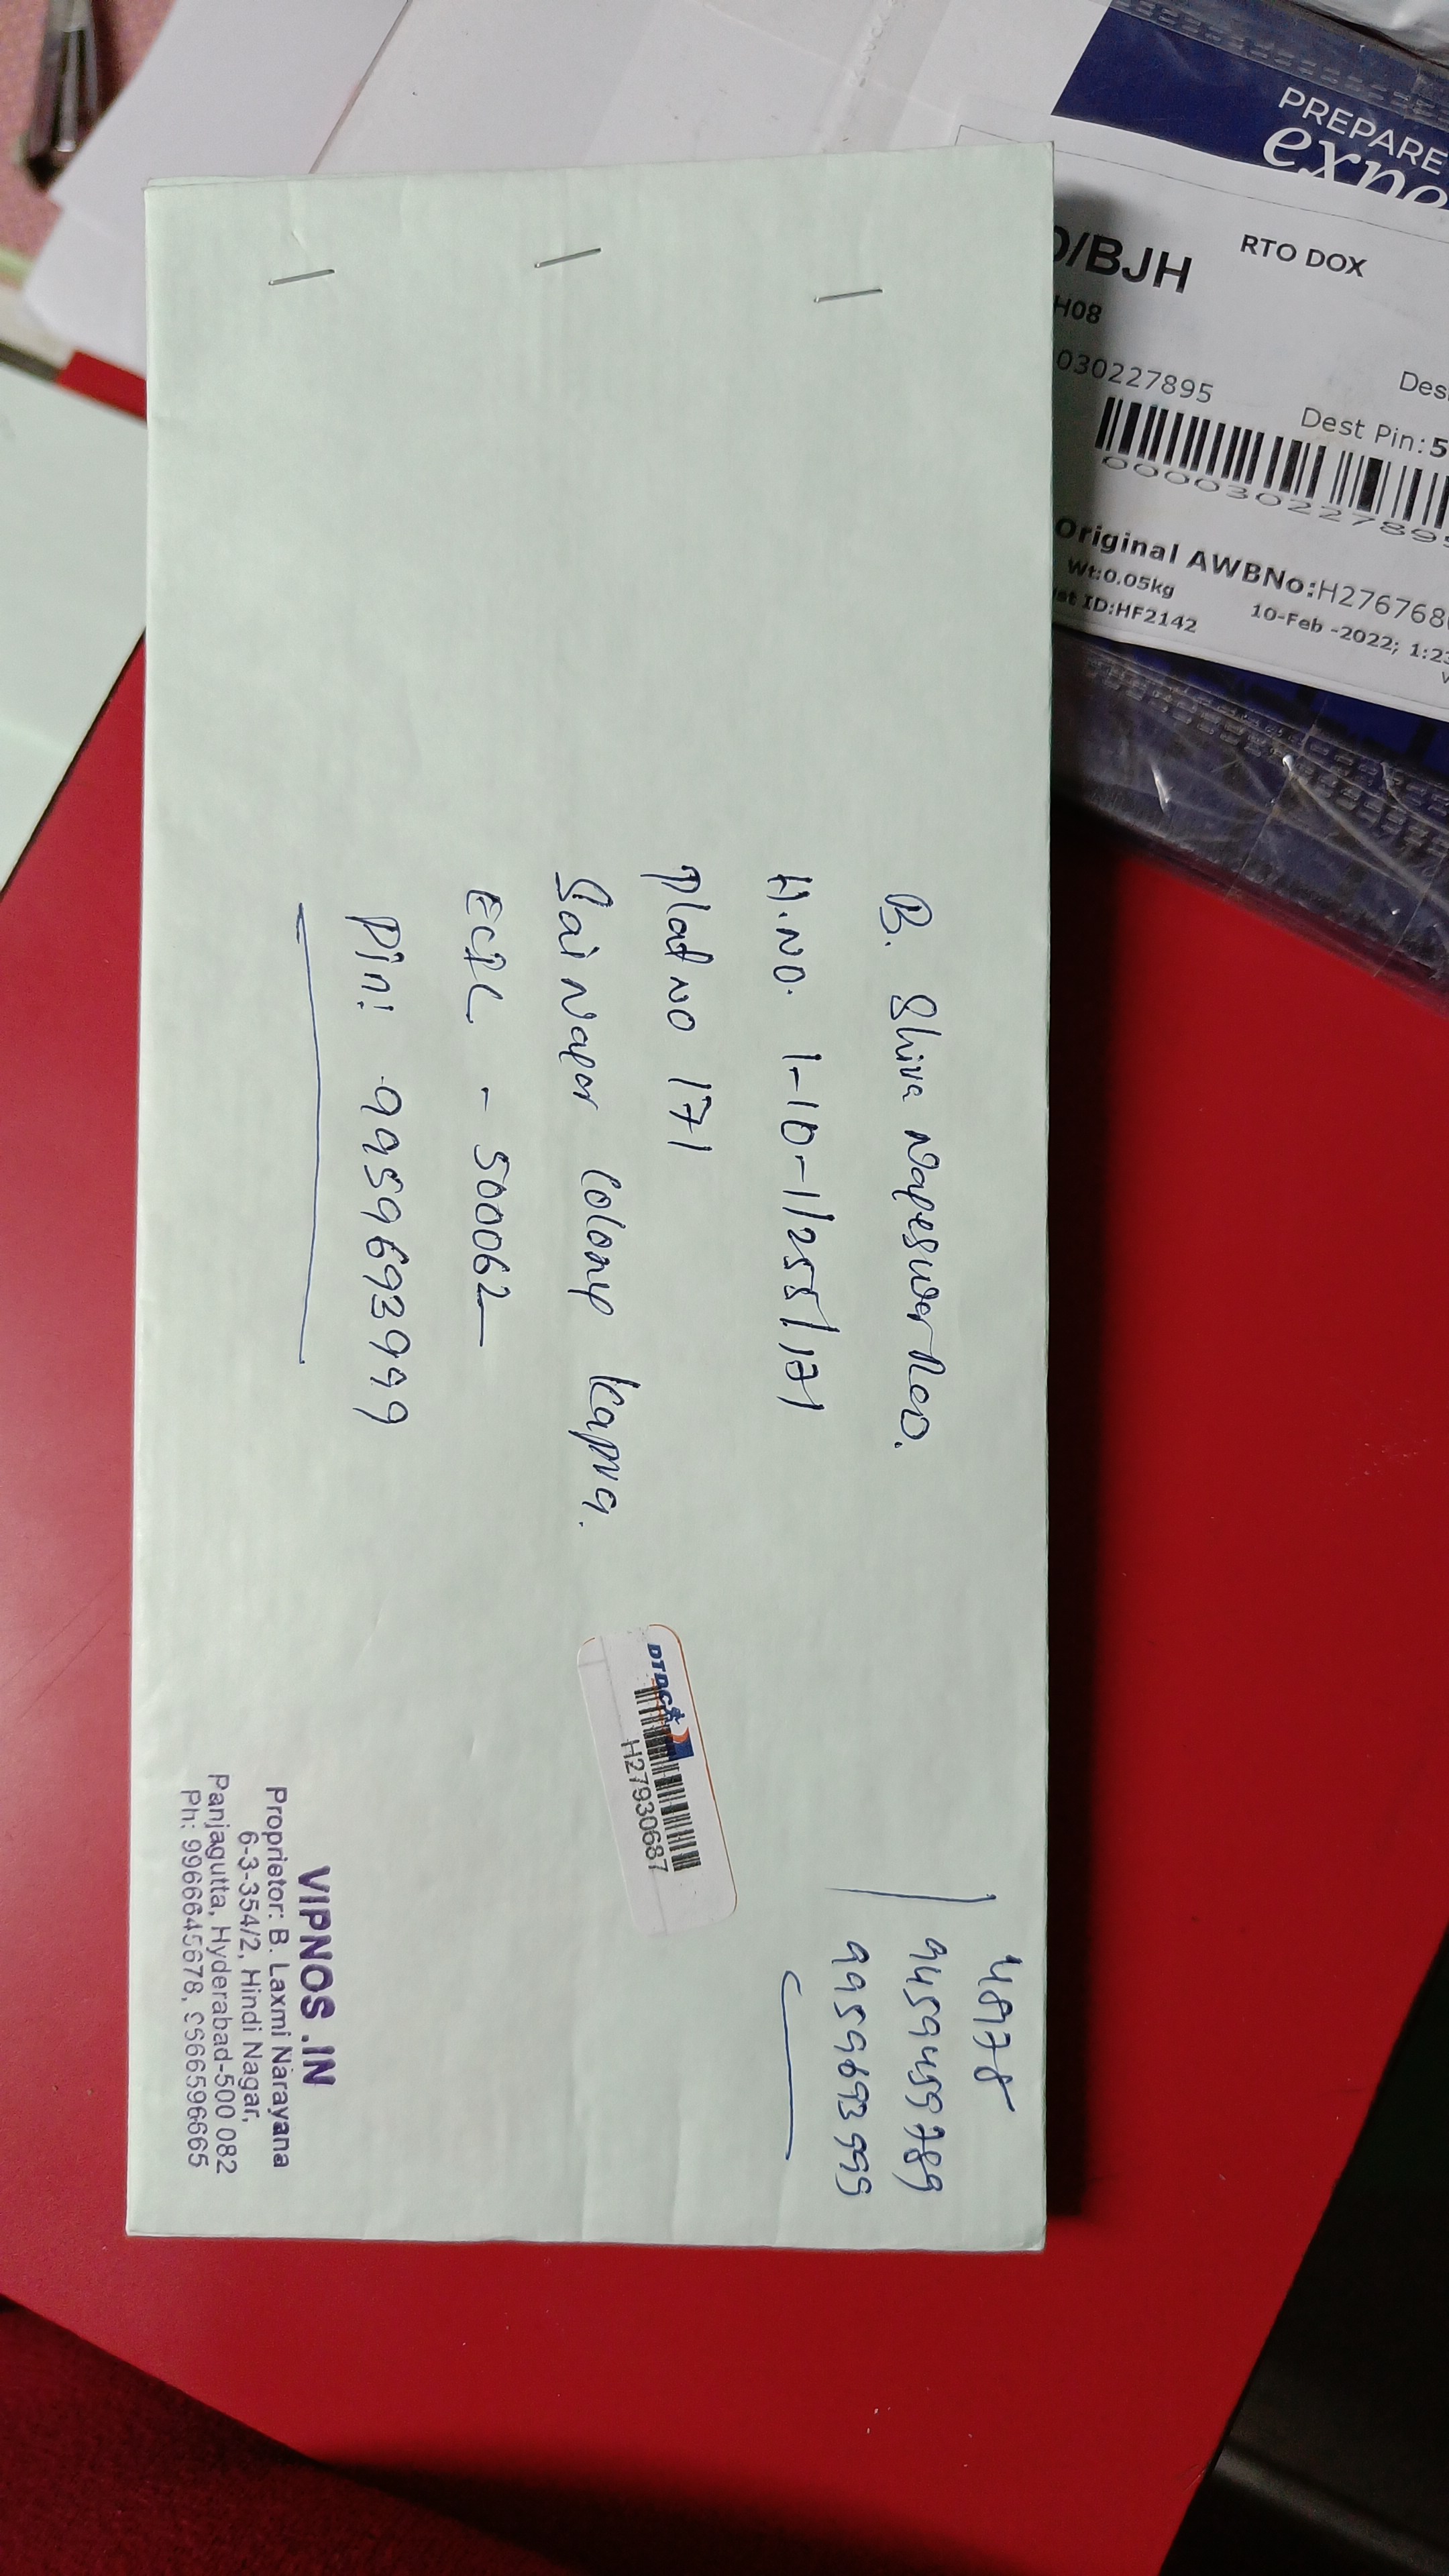 48978
9459455789
9959693999
B. Shiva Nageswar Rao.
H.NO. 1-10-1/255/171
plat no 171
Sai Nagar Colony Kapra.
ECIL - 500062
Pin: 9959693999
DTDC
H27930687
VIPNOS .IN
Proprietor: B. Laxmi Narayana
6-3-354/2, Hindi Nagar,
Panjagutta, Hyderabad-500 082
Ph: 9966645678, 9566596665
PREPARE
expe
O/BJH
RTO DOX
H08
030227895
Des
Dest Pin:5
000030227895
Original AWBNo:H276768
Wt:0.05kg
st ID:HF2142
10-Feb -2022; 1:23